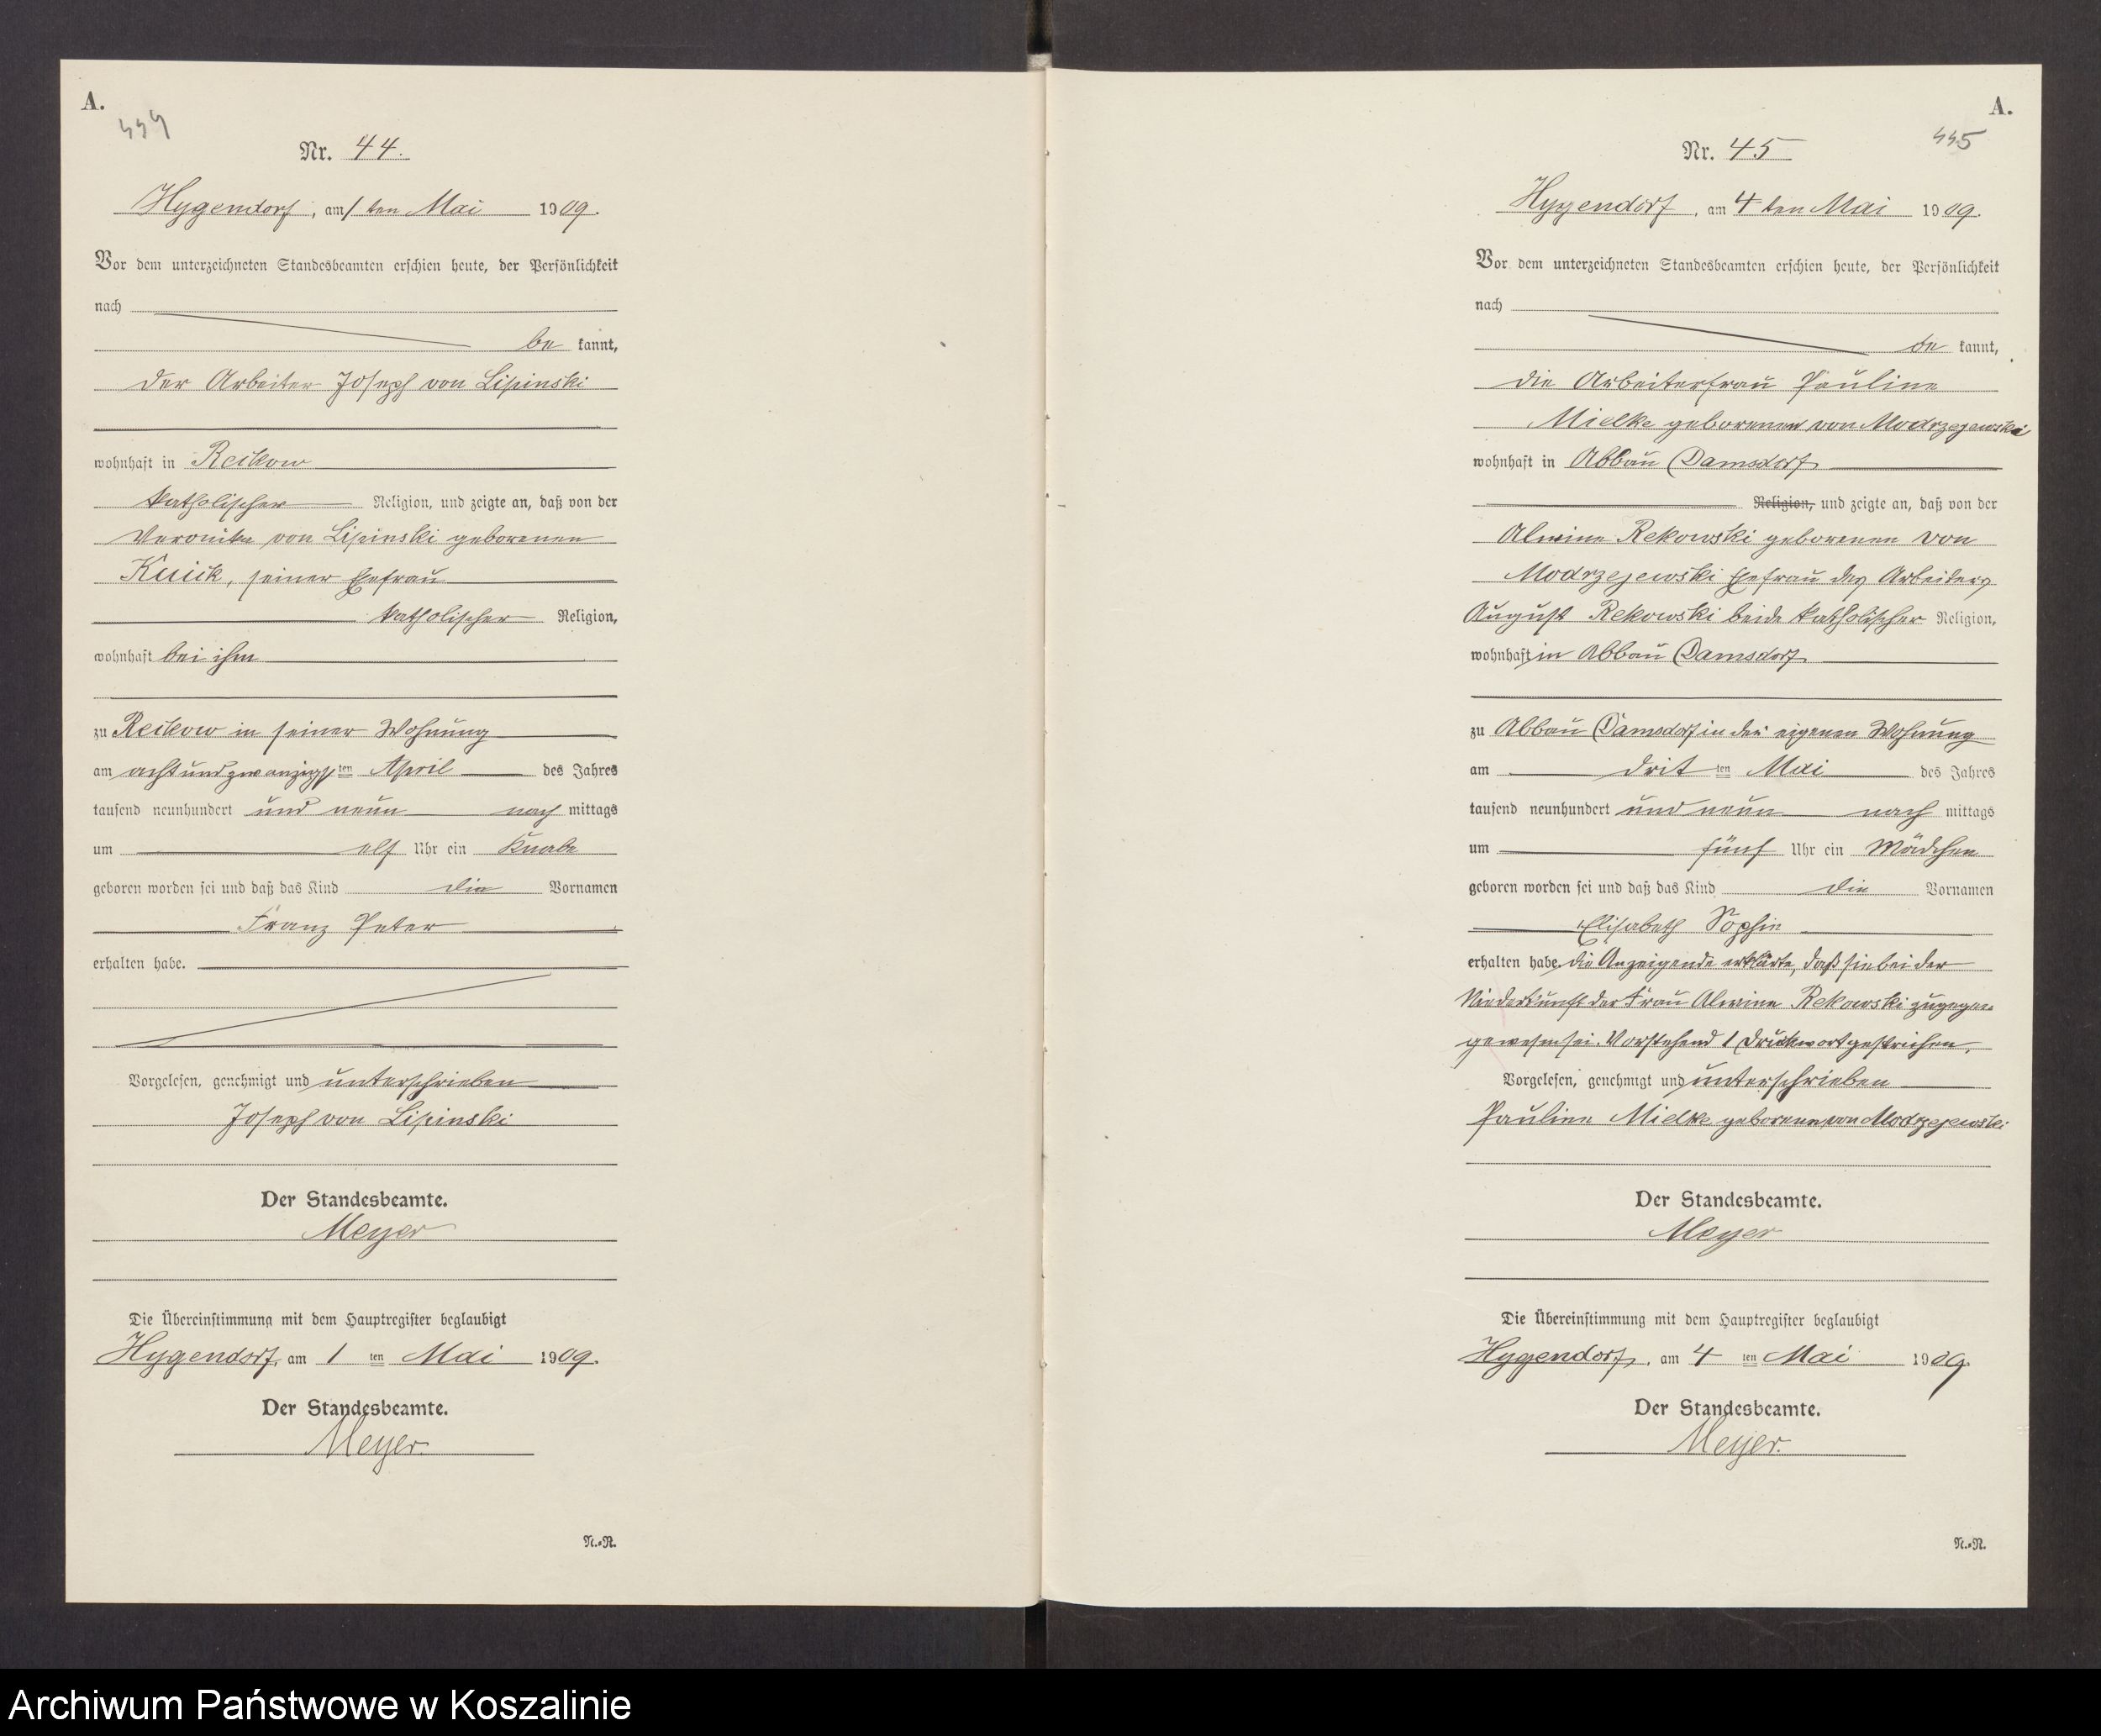 A.
444
Nr. 44.
Hygendorf, am 1 ten Mai 1909.
Vor dem unterzeichneten Standesbeamten erschien heute, der Persönlichkeit
nach
be kannt,
der Arbeiter Joseph von Lipinski
wohnhaft in Reckow
katholischer Religion, und zeigte an, daß von der
Veronika von Lipinski geborenen
Kuick, seiner Ehefrau
katholischer Religion,
wohnhaft bei ihm
zu Reckow in seiner Wohnung
am achtundzwanzigsten April des Jahres
tausend neunhundert und neun nach mittags
um elf Uhr ein Knabe
geboren worden sei und daß das Kind die Vornamen
Franz Peter
erhalten habe.
Vorgelesen, genehmigt und unterschrieben
Joseph von Lipinski
Der Standesbeamte.
Meyer
Die Übereinstimmung mit dem Hauptregister beglaubigt
Hygendorf, am 1 ten Mai 1909.
Der Standesbeamte.
Meyer.
N.=R.
A.
445
Nr. 45
Hygendorf, am 4 ten Mai 1909.
Vor dem unterzeichneten Standesbeamten erschien heute, der Persönlichkeit
nach
be kannt,
die Arbeiterfrau Pauline
Mielke geborenen von Modrzejewski
wohnhaft in Abbau Damsdorf
Religion, und zeigte an, daß von der
Alwine Rekowski geborenen von
Modrzejewski Ehefrau des Arbeiters
August Rekowski beide katholischer Religion,
wohnhaft in Abbau Damsdorf
zu Abbau Damsdorf in der eigenen Wohnung
am dritten Mai des Jahres
tausend neunhundert und neun nach mittags
um fünf Uhr ein Mädchen
geboren worden sei und daß das Kind die Vornamen
Elisabeth Sophie
erhalten habe. Die Anzeigende erklärte, daß sie bei der
Niederkunft der Frau Alwine Rekowski zugegen
gewesen sei. Vorstehend 1 Druckwort gestrichen.
Vorgelesen, genehmigt und unterschrieben
Pauline Mielke geborene von Modrzejewski
Der Standesbeamte.
Meyer
Die Übereinstimmung mit dem Hauptregister beglaubigt
Hygendorf, am 4 ten Mai 1909.
Der Standesbeamte.
Meyer.
N.=R.
Archiwum Państwowe w Koszalinie